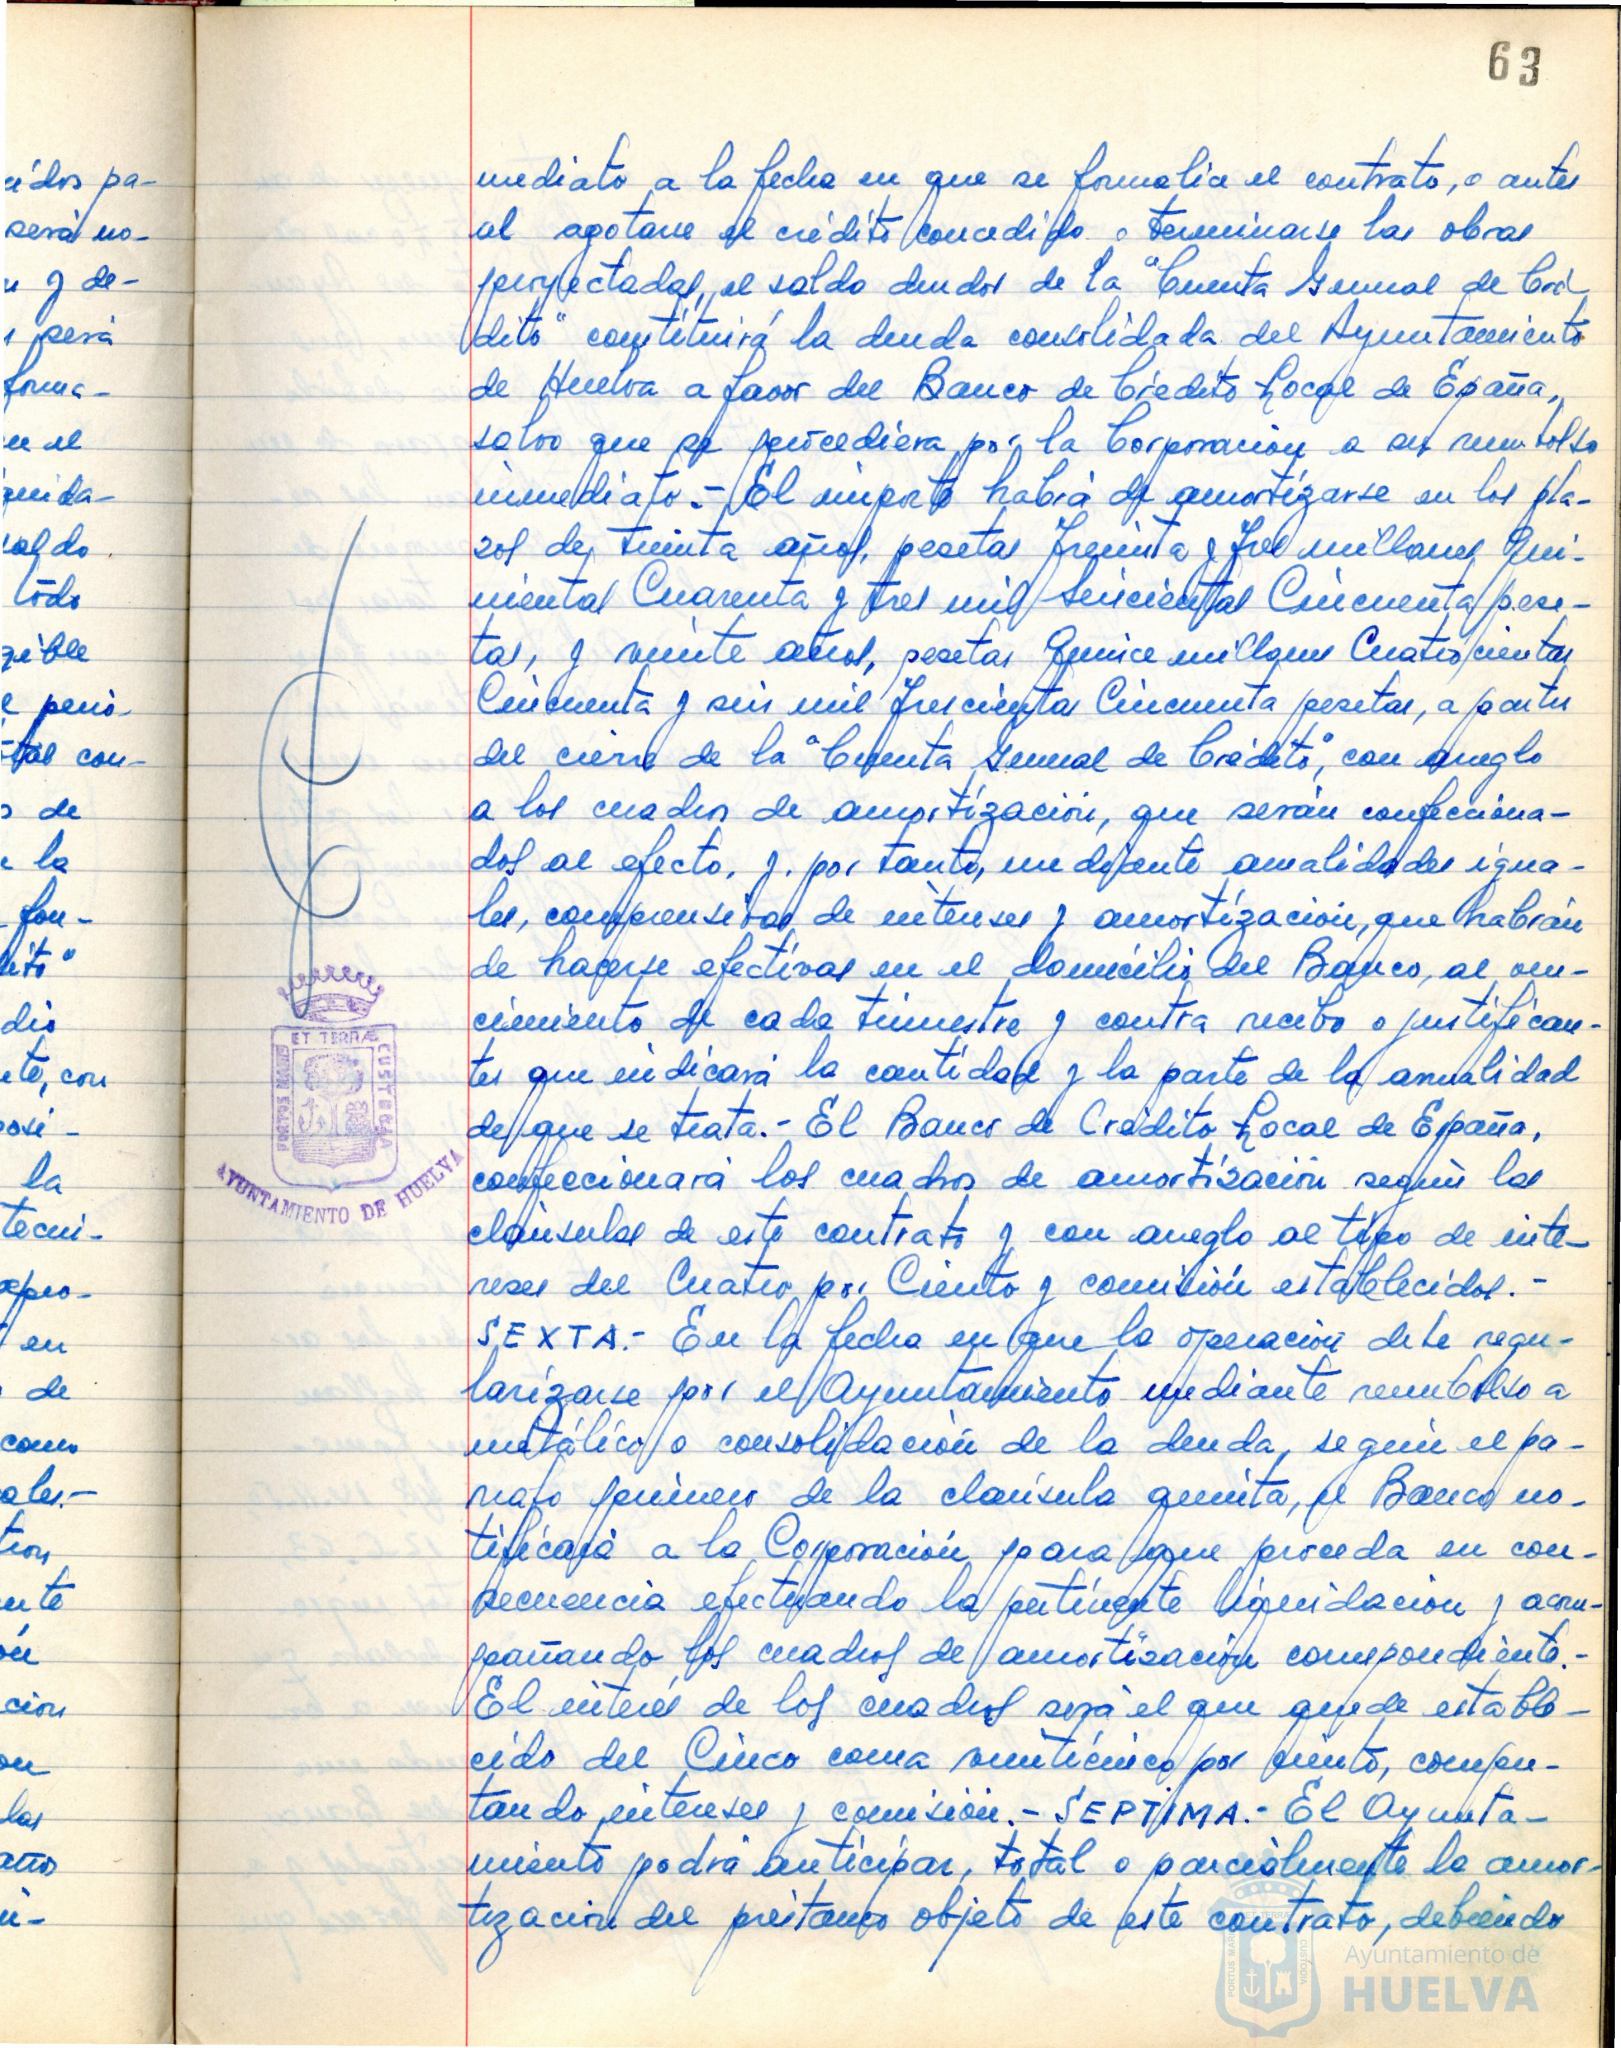 63
mediato a la fecha en que se formalice el contrato, o antes
al agotarse el crédito concedido o terminarse las obras
proyectadas, el saldo deudor de la "Cuenta General de Cré-
dito" constituirá la deuda consolidada del Ayuntamiento
de Huelva a favor del Banco de Crédito Local de España,
salvo que se procediera por la Corporación a su reembolso
inmediato.- El importe habrá de amortizarse en los pla-
zos de, treinta años, pesetas Treinta y Tres millones Qui-
nientas Cuarenta y tres mil Seiscientas Cincuenta pese-
tas, y veinte años, pesetas Quince millones Cuatrocientas
Cincuenta y seis mil Trescientas Cincuenta pesetas, a partir
del cierre de la "Cuenta General de Crédito", con arreglo
a los cuadros de amortización, que serán confecciona-
dos al efecto, y, por tanto, mediante anualidades igua-
les, comprensivas de intereses y amortización, que habrán
de hacerse efectivas en el domicilio del Banco, al ven-
cimiento de cada trimestre y contra recibo o justifican-
tes que indicará la cantidad y la parte de la anualidad
de que se trata.- El Banco de Crédito Local de España,
confeccionará los cuadros de amortización según las
cláusulas de este contrato y con arreglo al tipo de inte-
reses del Cuatro por Ciento y comisión establecidos.-
SEXTA.- En la fecha en que la operación debe regu-
larizarse por el Ayuntamiento mediante reembolso a
metálico o consolidación de la deuda, según el pá-
rrafo primero de la cláusula quinta, el Banco no-
tificará a la Corporación para que proceda en con-
secuencia efectuando la pertinente liquidación y acom-
pañando los cuadros de amortización correspondiente.-
El interés de los cuadros será el que quede estable-
cido del Cinco coma veinticinco por ciento, compu-
tando intereses y comisión.- SEPTIMA.- El Ayunta-
miento podrá anticipar, total o parcialmente la amor-
tización del préstamo objeto de este contrato, debiendo
PORTUS MARIS
ET TERRÆ
CUSTODIA
AYUNTAMIENTO DE HUELVA
cidos pa-
será no-
y de-
será
forma-
en el
saldo
todo
con-
de
la
fon-
con
la
en
de
como
Ayuntamiento de
HUELVA